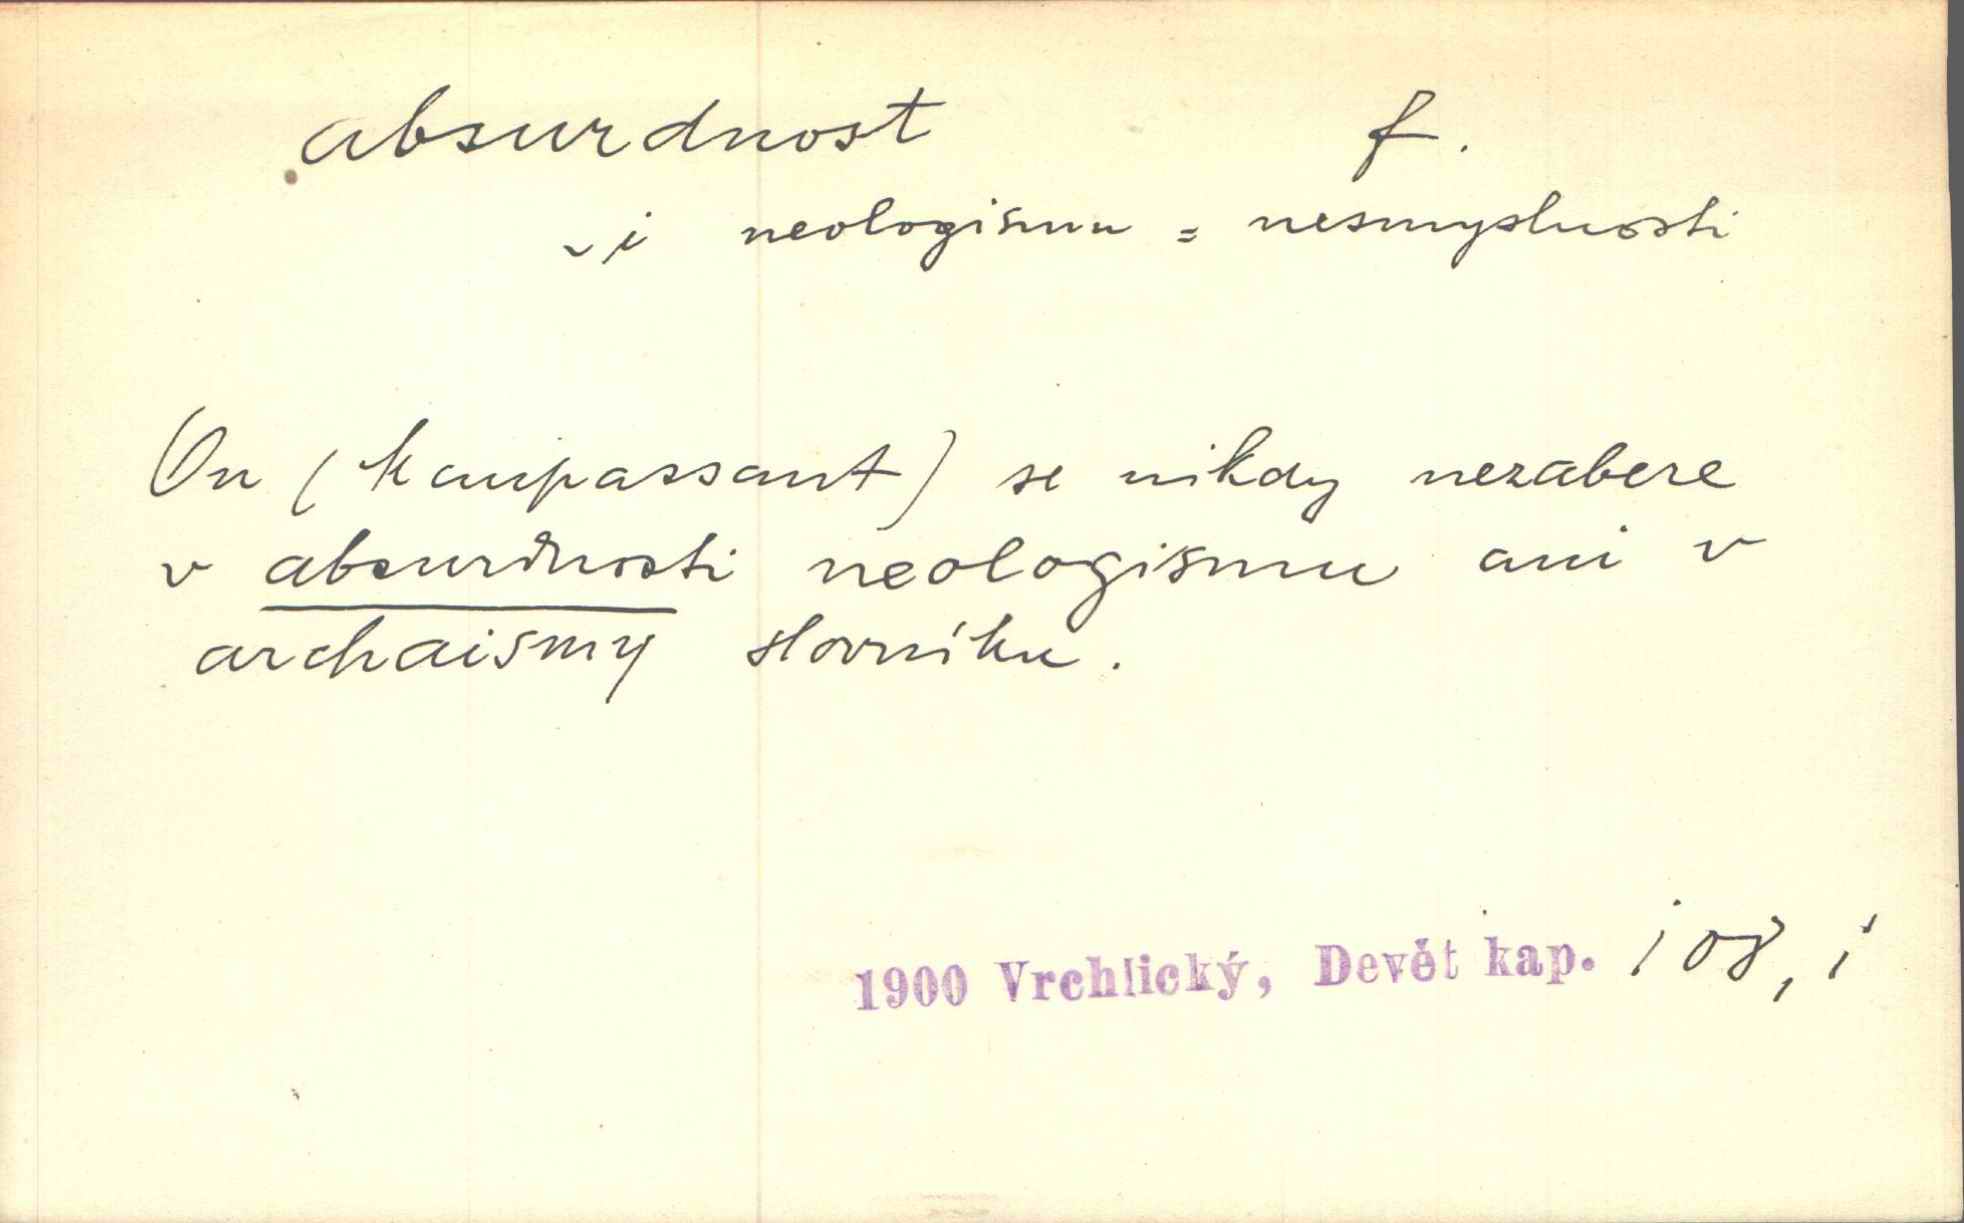 absurdnost f.
~i neologismu = nesmyslnosti
On (Maupassant) se nikdy nezabere
v absurdnosti neologismu ani v
archaismy slovníku.
1900 Vrchlický, Devět kap. 108, i